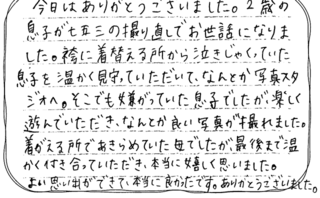 今日はありがとうございました。2歳の
息子が七五三の撮り直しでお世話になりま
した。袴に着替える所から泣きじゃくっていた
息子を温かく見守っていただいて、なんとか写真スタ
ジオへ。そこでも嫌がっていた息子でしたが、楽しく
遊んでいただき、なんとか良い写真が撮れました。
着がえる所であきらめていた母でしたが最後まで温
かく付き合っていただき、本当に嬉しく思いました。
よい思い出ができて、本当に良かったです。ありがとうございました。